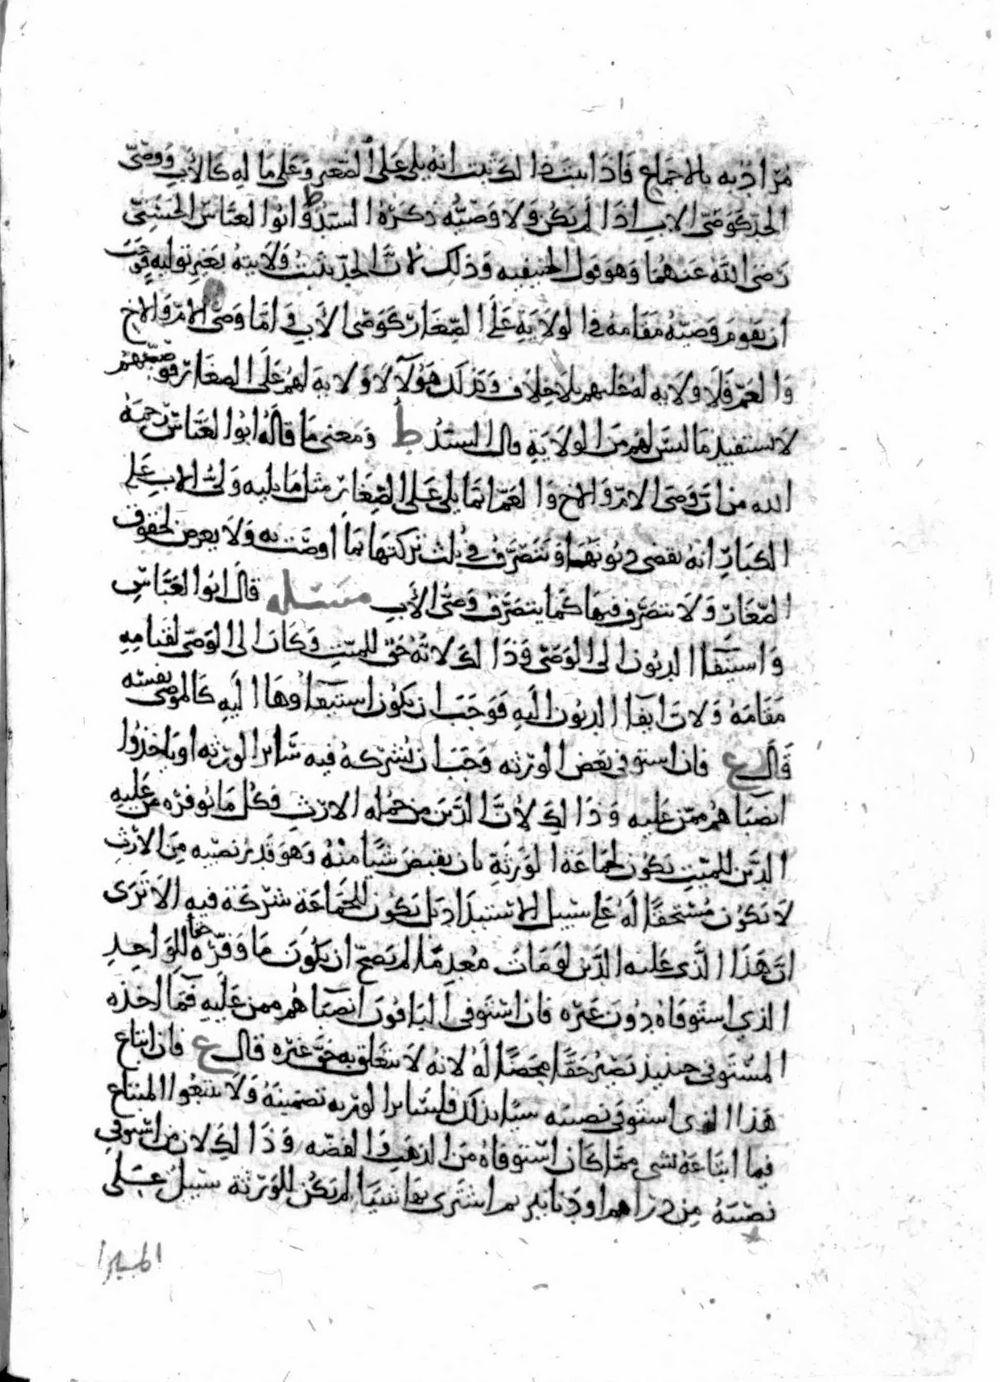 مراد به بالاجماع فاذا ثبت ذا لك ثبت انه يلي على الصغير وعلى ماله كالاب ووصي
الجد كوصي الاب اذا لم يكن ولا وصيه ذكره السيد ط وابوا العباس الحسني
رضي الله عنهما وهو قول الحنيفيه وذلك لان الجد يثبت ولايته بغير توليه فوجب
ان يقوم وصيه مقامه في الولايه على الصغار كوصي الاب فاما وصي الام والاخ
والعم فلا ولايه له عليهم بلا خلاف وكذلك هؤلآ لا ولايه لهم على الصغار فوصيهم
لا يستفيد ما ليس لهم من الولاية قال السيد ط ومعنى ما قاله ابوا العباس رحمه
الله من ان وصي الام والاخ والعم انما يلي على الصغار مثل ما يليه ولي الاب على
الكبار انه يقضي ديونهما ويتصرف في ثلث تركتها بما اوصت به ولا يعرض لحقوق
الصغار ولا يتصرف فيها كما يتصرف وصي الاب مسئله قال ابوا العباس
واستيفا الديون الى الوصي وذا لك لانه حق للميت وكان الى الوصي لقيامه
مقامه ولان ايفا الديون اليه فوجب ان يكون استيفاوها اليه كالموصي نفسه
قال ع فان استوفى بعض الورثه وجب ان يشركه فيه سائر الورثه او ياخذوا
انصباهم ممن عليه وذا لك لان الدين من جمله الارث فكل ما يوفره من عليه
الدين للميت يكون لجماعة الورثة بان يقبض شيا منه وهو قدر نصيبه من الارث
لا يكون مستحقا له على سبيل الاستبداد بل يكون للجماعة شركة فيه الا ترى
ان هذا الذي عليه الدين لو مات معدما لم يصح ان يكون ما وفره حقا للواحد
الذي استوفاه دون غيره فان استوفى الباقون انصباهم ممن عليه فما اخذه
المستوفي حينيذ يصير حقا محضا له لانه لا يتعلق به حق غيره قال ع فان ابتاع
هذا الذي استوفى نصيبه شيا بذلك فلسائر الورثه تضمينه ولا يتبعوا المبتاع
فيما ابتاعه بشي مما كان استوفاه من الذهب والفضه وذا لك لان من استوفى
نصيبه من دراهم او دنانير ثم اشترى بها شيا لم يكن للورثة سبيل على